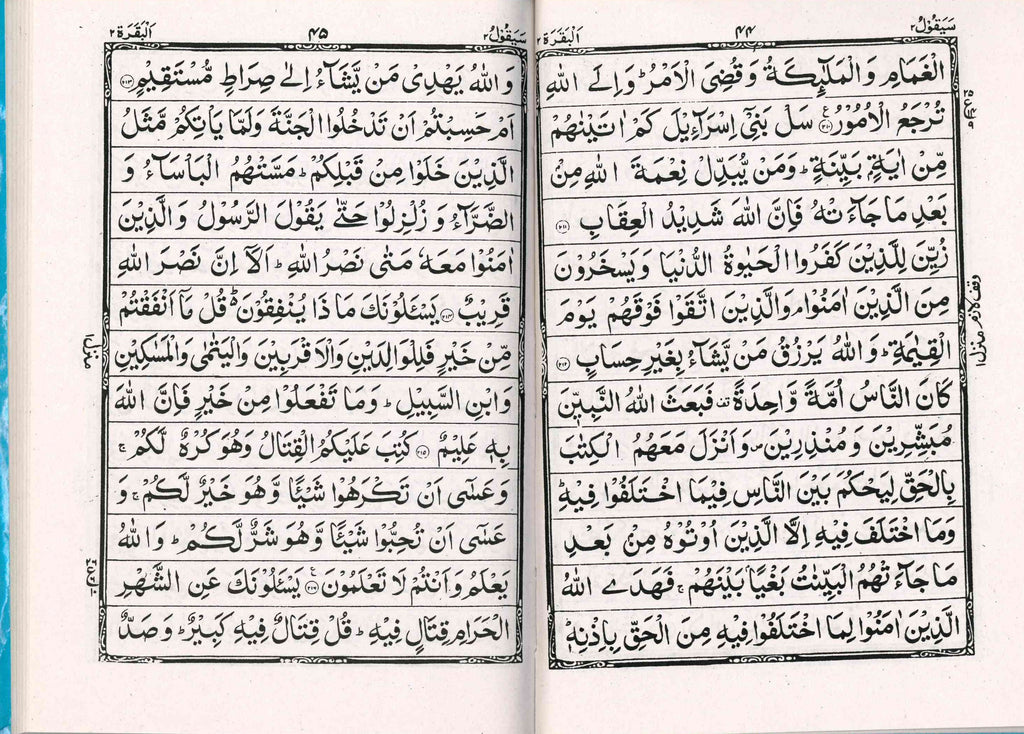 سَيَقُوْلُ ٢
٤٤
اَلْبَقَرَة ٢
الْغَمَامِ وَالْمَلٰٓئِكَةُ وَقُضِىَ الْاَمْرُ ؕ وَاِلَى اللّٰهِ
تُرْجَعُ الْاُمُوْرُ ﴿۲۱۰﴾ سَلْ بَنِىْٓ اِسْرَآءِيْلَ كَمْ اٰتَيْنٰهُمْ
مِّنْ اٰيَةٍۭ بَيِّنَةٍ ؕ وَمَنْ يُّبَدِّلْ نِعْمَةَ اللّٰهِ مِنْۢ
بَعْدِ مَا جَآءَتْهُ فَاِنَّ اللّٰهَ شَدِيْدُ الْعِقَابِ ﴿۲۱۱﴾
زُيِّنَ لِلَّذِيْنَ كَفَرُوا الْحَيٰوةُ الدُّنْيَا وَيَسْخَرُوْنَ
مِنَ الَّذِيْنَ اٰمَنُوْا ۘ وَالَّذِيْنَ اتَّقَوْا فَوْقَهُمْ يَوْمَ
الْقِيٰمَةِ ؕ وَاللّٰهُ يَرْزُقُ مَنْ يَّشَآءُ بِغَيْرِ حِسَابٍ ﴿۲۱۲﴾
كَانَ النَّاسُ اُمَّةً وَّاحِدَةً قف فَبَعَثَ اللّٰهُ النَّبِيّٖنَ
مُبَشِّرِيْنَ وَمُنْذِرِيْنَ ص وَاَنْزَلَ مَعَهُمُ الْكِتٰبَ
بِالْحَقِّ لِيَحْكُمَ بَيْنَ النَّاسِ فِيْمَا اخْتَلَفُوْا فِيْهِ ؕ
وَمَا اخْتَلَفَ فِيْهِ اِلَّا الَّذِيْنَ اُوْتُوْهُ مِنْۢ بَعْدِ
مَا جَآءَتْهُمُ الْبَيِّنٰتُ بَغْيًاۢ بَيْنَهُمْ ۚ فَهَدَى اللّٰهُ
الَّذِيْنَ اٰمَنُوْا لِمَا اخْتَلَفُوْا فِيْهِ مِنَ الْحَقِّ بِاِذْنِهٖ ؕ
وقف لازم
منزل ١
سَيَقُوْلُ ٢
٤٥
اَلْبَقَرَة ٢
وَاللّٰهُ يَهْدِىْ مَنْ يَّشَآءُ اِلٰى صِرَاطٍ مُّسْتَقِيْمٍ ﴿۲۱۳﴾
اَمْ حَسِبْتُمْ اَنْ تَدْخُلُوا الْجَنَّةَ وَلَمَّا يَاْتِكُمْ مَّثَلُ
الَّذِيْنَ خَلَوْا مِنْ قَبْلِكُمْ ؕ مَسَّتْهُمُ الْبَاْسَآءُ وَ
الضَّرَّآءُ وَزُلْزِلُوْا حَتّٰى يَقُوْلَ الرَّسُوْلُ وَالَّذِيْنَ
اٰمَنُوْا مَعَهٗ مَتٰى نَصْرُ اللّٰهِ ؕ اَلَاۤ اِنَّ نَصْرَ اللّٰهِ
قَرِيْبٌ ﴿۲۱۴﴾ يَسْـَٔلُوْنَكَ مَاذَا يُنْفِقُوْنَ ؕ قُلْ مَاۤ اَنْفَقْتُمْ
مِّنْ خَيْرٍ فَلِلْوَالِدَيْنِ وَالْاَقْرَبِيْنَ وَالْيَتٰمٰى وَالْمَسٰكِيْنِ
وَابْنِ السَّبِيْلِ ؕ وَمَا تَفْعَلُوْا مِنْ خَيْرٍ فَاِنَّ اللّٰهَ
بِهٖ عَلِيْمٌ ﴿۲۱۵﴾ كُتِبَ عَلَيْكُمُ الْقِتَالُ وَهُوَ كُرْهٌ لَّكُمْ ۚ
وَعَسٰٓى اَنْ تَكْرَهُوْا شَيْـًٔا وَّهُوَ خَيْرٌ لَّكُمْ ۚ وَ
عَسٰٓى اَنْ تُحِبُّوْا شَيْـًٔا وَّهُوَ شَرٌّ لَّكُمْ ؕ وَاللّٰهُ
يَعْلَمُ وَاَنْتُمْ لَا تَعْلَمُوْنَ ﴿۲۱۶﴾ يَسْـَٔلُوْنَكَ عَنِ الشَّهْرِ
الْحَرَامِ قِتَالٍ فِيْهِ ؕ قُلْ قِتَالٌ فِيْهِ كَبِيْرٌ ؕ وَصَدٌّ
منزل ١